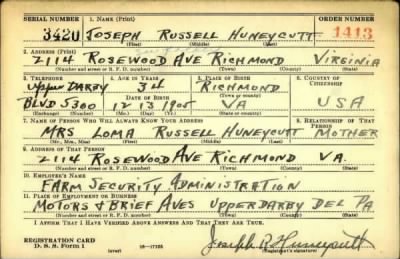 SERIAL NUMBER 1. NAME (Print) ORDER NUMBER
3420 JOSEPH RUSSELL HUNEYCUTT 1413
(First) (Middle) (Last)
2. ADDRESS (Print)
2114 ROSEWOOD AVE RICHMOND VIRGINIA
(Number and street or R. F. D. number) (Town) (County) (State)
3. TELEPHONE 4. AGE IN YEARS 5. PLACE OF BIRTH 6. COUNTRY OF CITIZENSHIP
UPPER DARBY 34 RICHMOND
DATE OF BIRTH (Town or county)
BLVD 5300 12 13 1905 VA USA
(Exchange) (Number) (Mo.) (Day) (Yr.) (State or country)
7. NAME OF PERSON WHO WILL ALWAYS KNOW YOUR ADDRESS 8. RELATIONSHIP OF THAT PERSON
MRS LOMA RUSSELL HUNEYCUTT MOTHER
(Mr., Mrs., Miss) (First) (Middle) (Last)
9. ADDRESS OF THAT PERSON
2114 ROSEWOOD AVE RICHMOND VA.
(Number and street or R. F. D. number) (Town) (County) (State)
10. EMPLOYER'S NAME
FARM SECURITY ADMINISTRATION
11. PLACE OF EMPLOYMENT OR BUSINESS
MOTORS & BRIEF AVES UPPER DARBY DEL PA
(Number and street or R. F. D. number) (Town) (County) (State)
I AFFIRM THAT I HAVE VERIFIED ABOVE ANSWERS AND THAT THEY ARE TRUE.
REGISTRATION CARD
D. S. S. Form 1 (over) Joseph R. Huneycutt
(Registrant's signature)